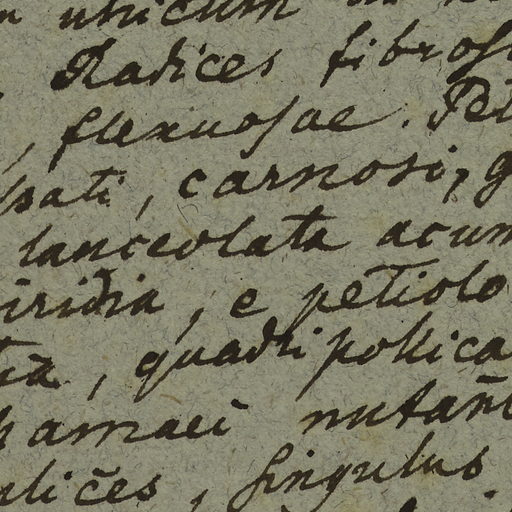 unicum
Radices fibros
, flexuosae. Pet
sati, carnosi, g
lanceolata acum
iridia, e petiolo
tia, quadripollica
hamaei nutan
plices, singulus